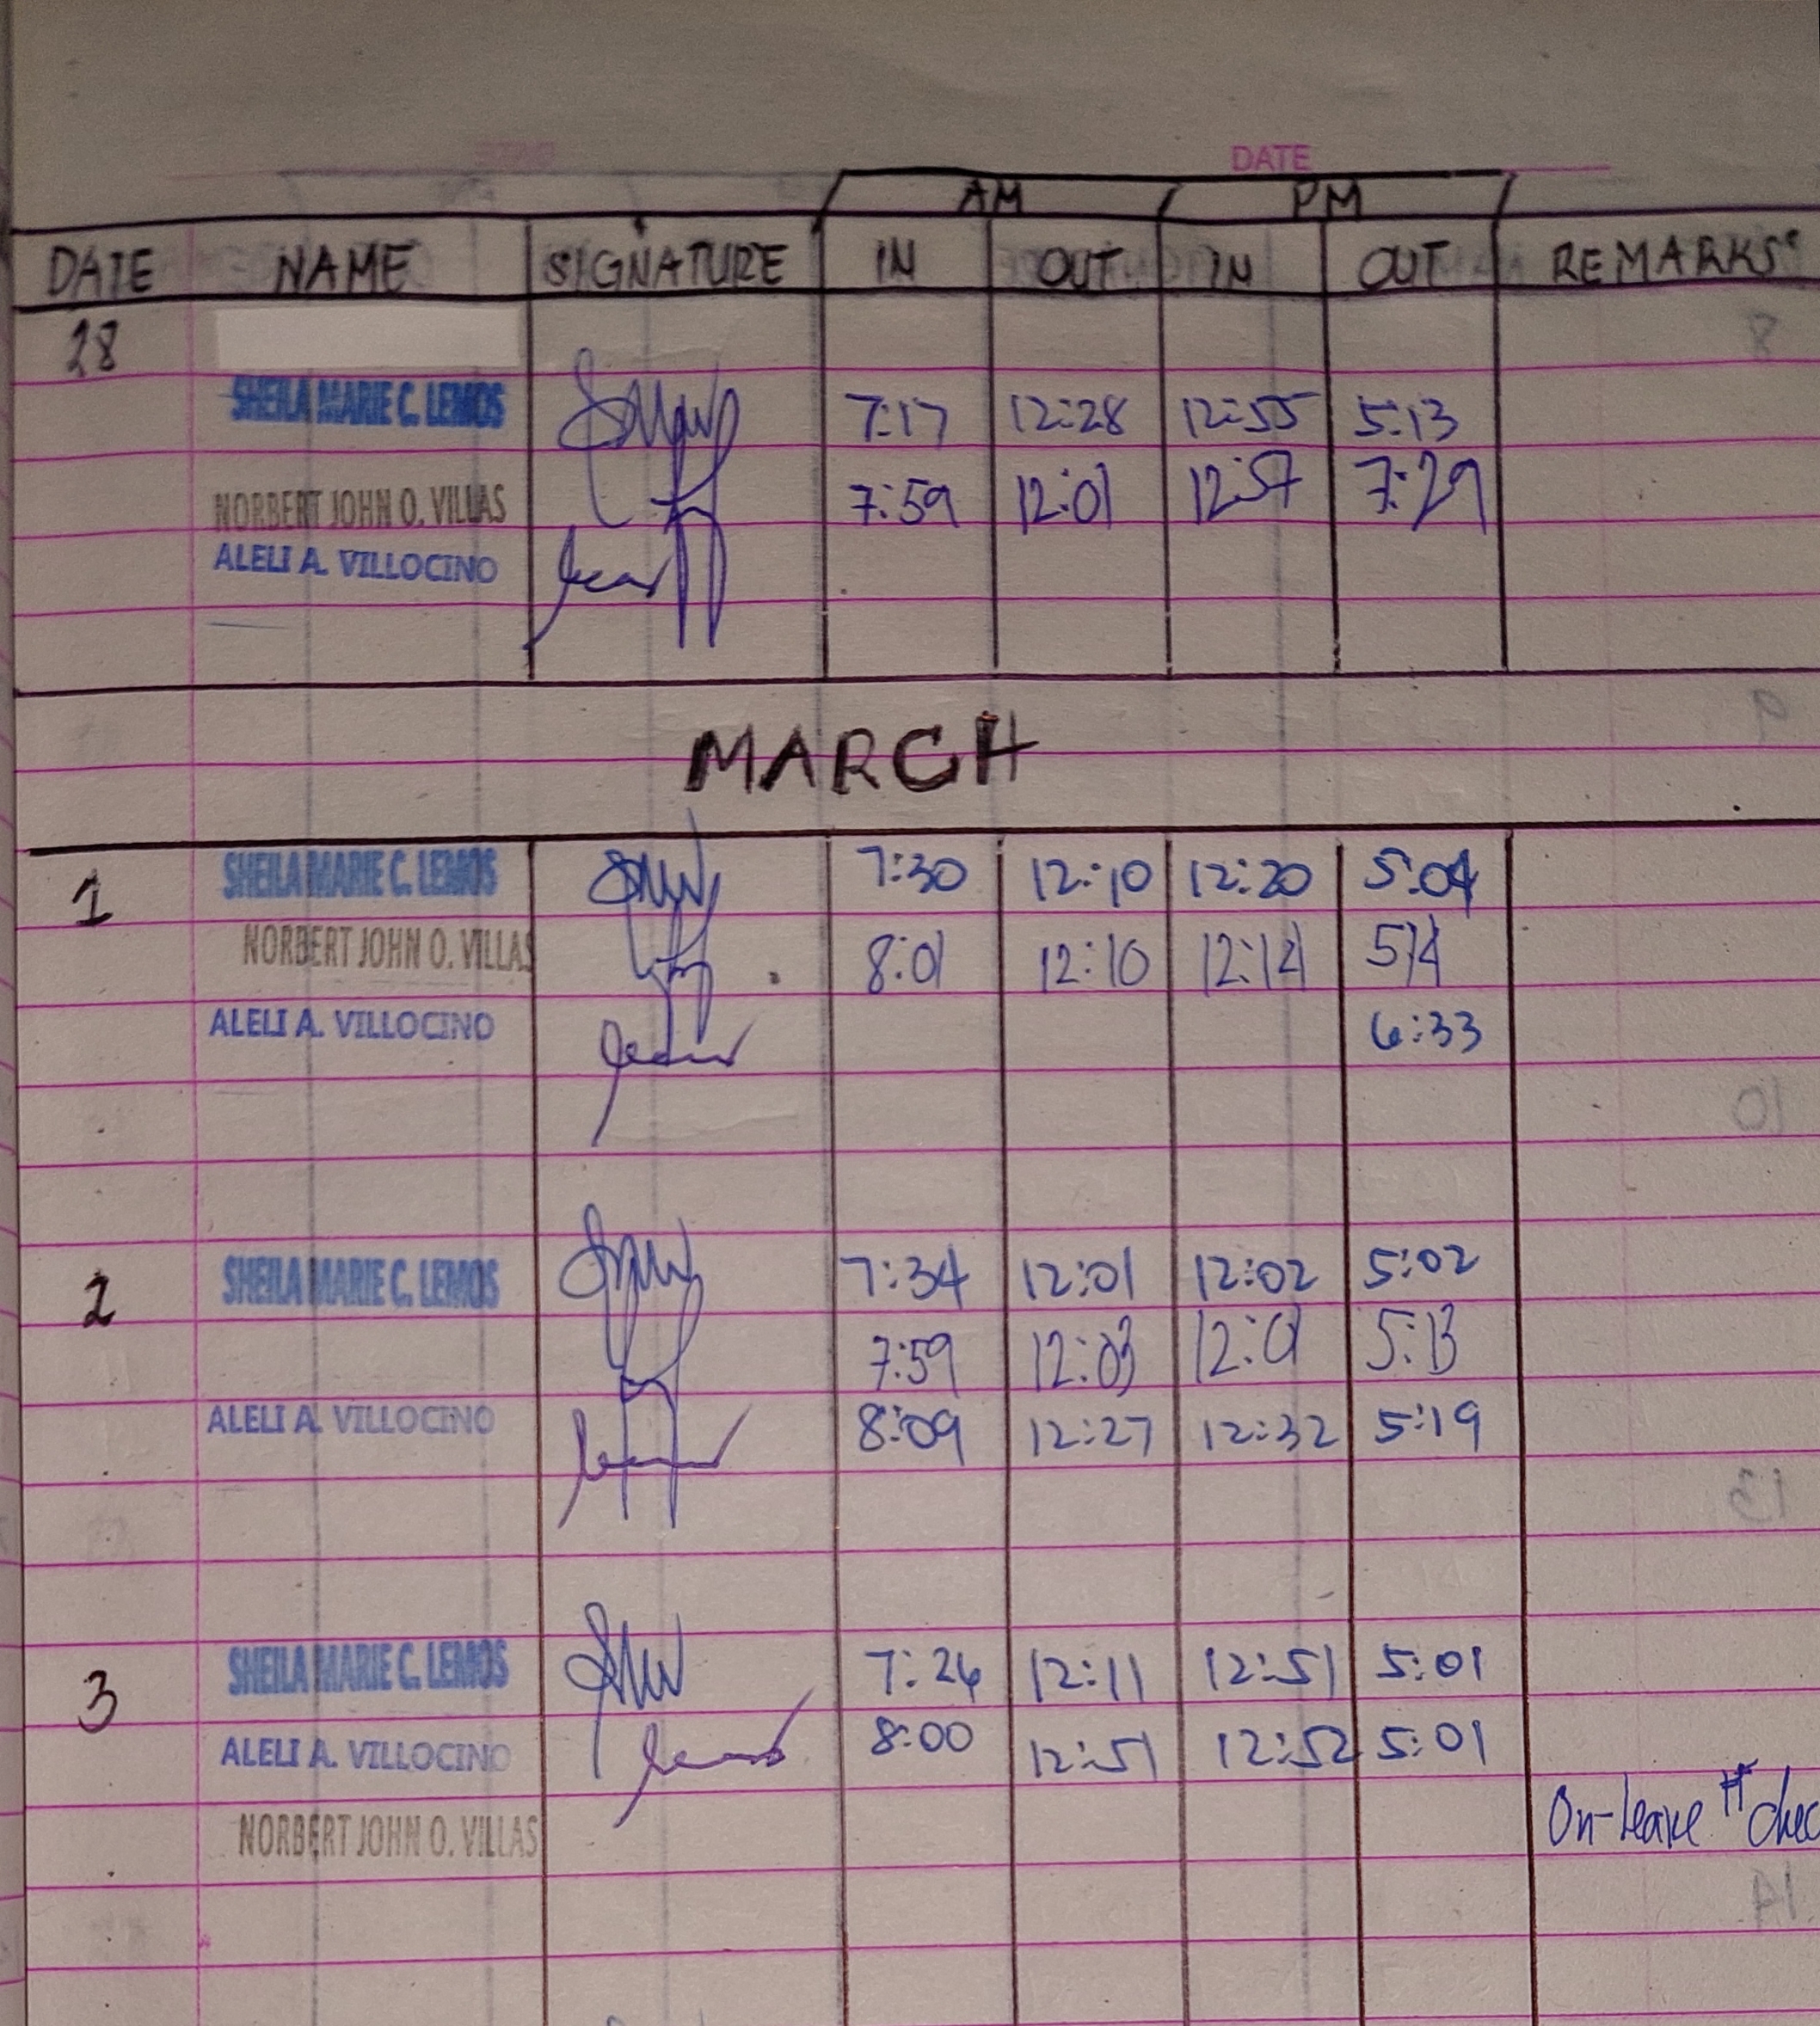 DATE
AM PM
DATE NAME SIGNATURE IN OUT IN OUT REMARKS
28
SHEILA MARIE C. LEMOS 7:17 12:28 12:55 5:13
NORBERT JOHN O. VILLAS 7:59 12:01 12:57 7:29
ALELI A. VILLOCINO
MARCH
1 SHEILA MARIE C. LEMOS 7:30 12:10 12:20 5:04
NORBERT JOHN O. VILLAS 8:01 12:10 12:14 5:14
ALELI A. VILLOCINO 6:33
2 SHEILA MARIE C. LEMOS 7:34 12:01 12:02 5:02
7:59 12:03 12:01 5:13
ALELI A. VILLOCINO 8:09 12:27 12:32 5:19
3 SHEILA MARIE C. LEMOS 7:26 12:11 12:51 5:01
ALELI A. VILLOCINO 8:00 12:51 12:52 5:01
NORBERT JOHN O. VILLAS On-leave